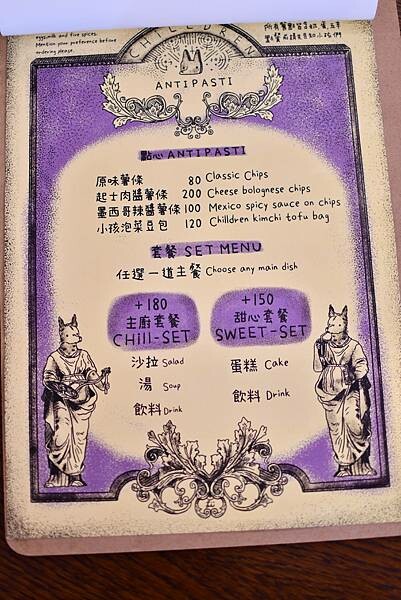 eggs,milk and five spices.
Mention your preference before
ordering please.
CHILLDREN
ANTIPASTI
點心 ANTIPASTI
原味薯條 80 Classic Chips
起士肉醬薯條 200 Cheese bolognese chips
墨西哥辣醬薯條 100 Mexico spicy sauce on chips
小孩泡菜豆包 120 Chilldren kimchi tofu bag
套餐 SET MENU
任選一道主餐 Choose any main dish
+180
主廚套餐
CHill-SET
沙拉 Salad
湯 Soup
飲料 Drink
+150
甜心套餐
SWEET-SET
蛋糕 Cake
飲料 Drink